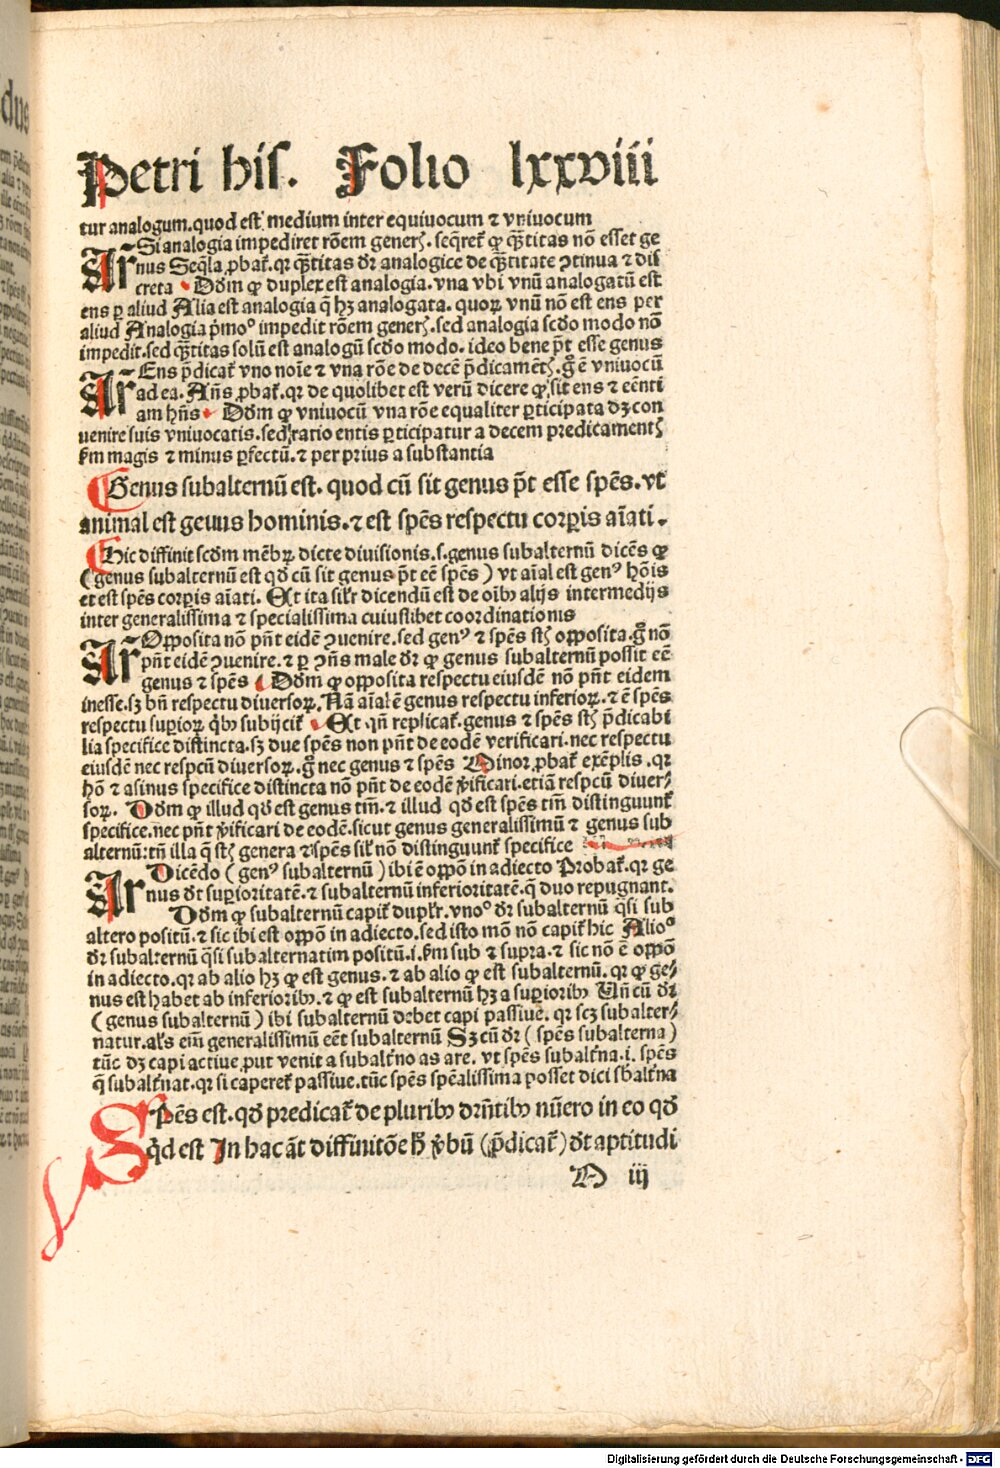 Petri his. Folio lxxviii
tur analogum. quod est medium inter equiuocum ⁊ vniuocum
Ar̄ Si analogia impediret rōem generꝭ. seq̄ret᷑ ꝙ q̄titas nō esset ge
nus Seq̄la ꝓbat᷑. qꝛ q̄titas dr̄ analogice de q̄titate ↄtinua ⁊ dis
creta Dōm ꝙ duplex est analogia. vna vbi vnū analogatū est
ens ꝑ aliud Alia est analogia q̄ hꝫ analogata. quoꝝ vnū nō est ens per
aliud Analogia p̄moꝰ impedit rōem generꝭ. sed analogia scd̄o modo nō
impedit. sed q̄titas solū est analogū scd̄o modo. ideo bene pt̄ esse genus
Ar̄ Ens p̄dicat᷑ vno noīe ⁊ vna rōe de decē p̄dicamētꝭ. gͦ ē vniuocū
ad ea. Añs ꝓbat᷑. qꝛ de quolibet est verū dicere ꝙ sit ens ⁊ eēnti
am hñs Dōm ꝙ vniuocū vna rōe equaliter ꝑticipata dꝫ con
uenire suis vniuocatis. sed ratio entis ꝑticipatur a decem predicamentꝭ
ẜm magis ⁊ minus ꝑfectū. ⁊ per prius a substantia
Genus subalternū est. quod cū sit genus pt̄ esse spēs. vt
animal est geuus hominis. ⁊ est spēs respectu corꝑis aīati.
Hic diffinit scd̄m mēbꝝ dicte diuisionis. s. genus subalternū dicēs ꝙ
(genus subalternū est qd̄ cū sit genus pt̄ eē spēs) vt aīal est genꝰ hōis
et est spēs corꝑis aīati. Et ita silr̄ dicendū est de oībꝰ alijs intermedijs
inter generalissima ⁊ specialissima cuiuslibet coordinationis
Ar̄ Opposita nō pn̄t eidē ↄuenire. sed genꝰ ⁊ spēs st̄ opposita. gͦ nō
pn̄t eidē ↄuenire. ⁊ ꝑ ↄñs male dr̄ ꝙ genus subalternū possit eē
genus ⁊ spēs Dōm ꝙ opposita respectu eiusdē nō pn̄t eidem
inesse. sꝫ bn̄ respectu diuersoꝝ. Nā aīal ē genus respectu inferioꝝ. ⁊ ē spēs
respectu suꝑioꝝ qͥbꝰ subijcit᷑ Et qn̄ replicat᷑. genus ⁊ spēs st̄ p̄dicabi
lia specifice distincta. sꝫ due spēs non pn̄t de eodē verificari. nec respectu
eiusdē nec respcū diuersoꝝ. gͦ nec genus ⁊ spēs Minor ꝓbat᷑ exēplis. qꝛ
hō ⁊ asinus specifice distincta nō pn̄t de eodē v̄ificari. etiā respcū diuer⸗
soꝝ. Dōm ꝙ illud qd̄ est genus tm̄. ⁊ illud qd̄ est spēs tm̄ distinguunt᷑
specifice. nec pn̄t v̄ificari de eodē. sicut genus generalissimū ⁊ genus sub
alternū: tn̄ illa q̄ st̄ genera ⁊ spēs sil̄ nō distinguunt᷑ specifice
Ar̄ Dicēdo (genꝰ subalternū) ibi ē oppō in adiecto Probat᷑. qꝛ ge
nus dt̄ suꝑioritatē. ⁊ subalternū inferioritatē. q̄ duo repugnant.
Dōm ꝙ subalternū capit᷑ duplr̄. vnoꝰ dr̄ subalternū q̄si sub
altero positū. ⁊ sic ibi est oppō in adiecto. sed isto mō nō capit᷑ hic Alioꝰ
dr̄ subalternū q̄si subalternatim positū. i. ẜm sub ⁊ supra. ⁊ sic nō ē oppō
in adiecto. qꝛ ab alio hꝫ ꝙ est genus. ⁊ ab alio ꝙ est subalternū. qꝛ ꝙ ge⸗
nus est habet ab inferioribꝰ. ⁊ ꝙ est subalternū hꝫ a suꝑioribꝰ Uñ cū dr̄
(genus subalternū) ibi subalternū debet capi passiue. qꝛ scꝫ subalter⸗
natur. als eīm generalissimū eēt subalternū Sꝫ cū dr̄ (spēs subalterna)
tūc dꝫ capi actiue ꝓut venit a subalt᷑no as are. vt spēs subalt᷑na. i. spēs
q̄ subalt᷑nat. qꝛ si caperet᷑ passiue. tūc spēs spēalissima posset dici sbalt᷑na
Spēs est. qd̄ predicat᷑ de pluribꝰ drn̄tibꝰ nūero in eo qd̄
qͥd est In hac āt diffinitōe h̄ v̄bū (p̄dicat᷑) dt̄ aptitudi
N iij
Digitalisierung gefördert durch die Deutsche Forschungsgemeinschaft - DFG